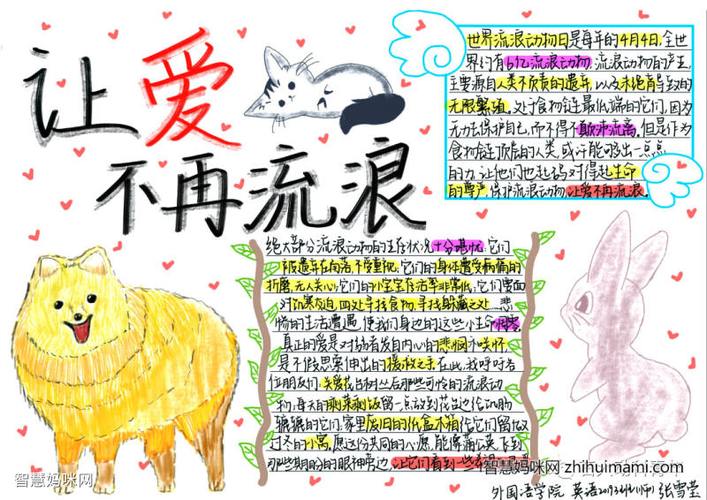 让爱
不再流浪
世界流浪动物日是每年的4月4日,全世
界约有6亿流浪动物,流浪动物的产生,
主要源自人类不负责的遗弃,以及未绝育导致的
无限繁殖,处于食物链最低端的它们,因为
无力去保护自己,而不得不颠沛流离。但是作为
食物链顶层的人类,或许能够出一点点
的力,让他们也起码对得起生命
的尊严,保护流浪动物,让爱不再流浪。
绝大部分流浪动物的生存状况十分堪忧,它们
被遗弃在角落,不受重视,它们的身体遭受病痛的
折磨,无人关心,它们的小宝宝存活率非常低,它们要面
对饥寒交迫,四处寻找食物,寻找躲藏之处,悲
惨的生活遭遇,使我们身边的这些小生命
真正的爱是对弱者发自内心的悲悯和关怀,
是不假思索伸出的援救之手,在此,我呼吁各
位朋友们,关爱花台树丛后那些可怜的流浪动
物,每天的剩菜剩饭留一点放到花台边给饥肠
辘辘的它们,家里废旧的纸盒木箱给它们留做
过冬的小窝,愿这份共同的心愿,能像蒲公英飞到
那些期盼的眼神旁边,让它们看到一些
智慧妈咪网
智慧妈咪网 zhihuimami.com
外国语学院 英语